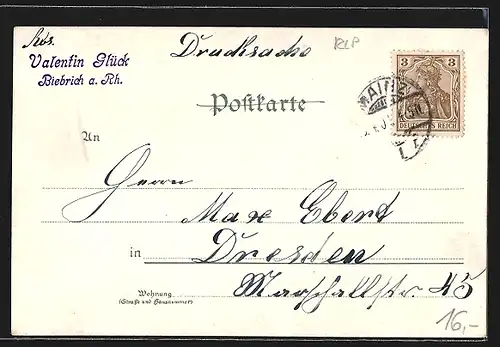 Abs.
Valentin Glück
Biebrich a. Rh.
Drucksache
RLP
3 3
DEUTSCHES REICH
MAINZ
Postkarte
An
Herrn
Max Ebert
in Dresden
Marschallstr. 45
Wohnung
(Straße und Hausnummer)
16,-